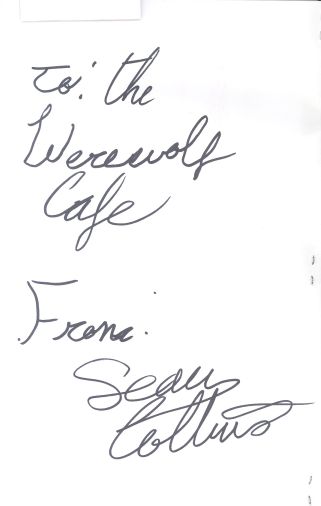 To: the
Werewolf
Cafe
From:
Sean
Collins